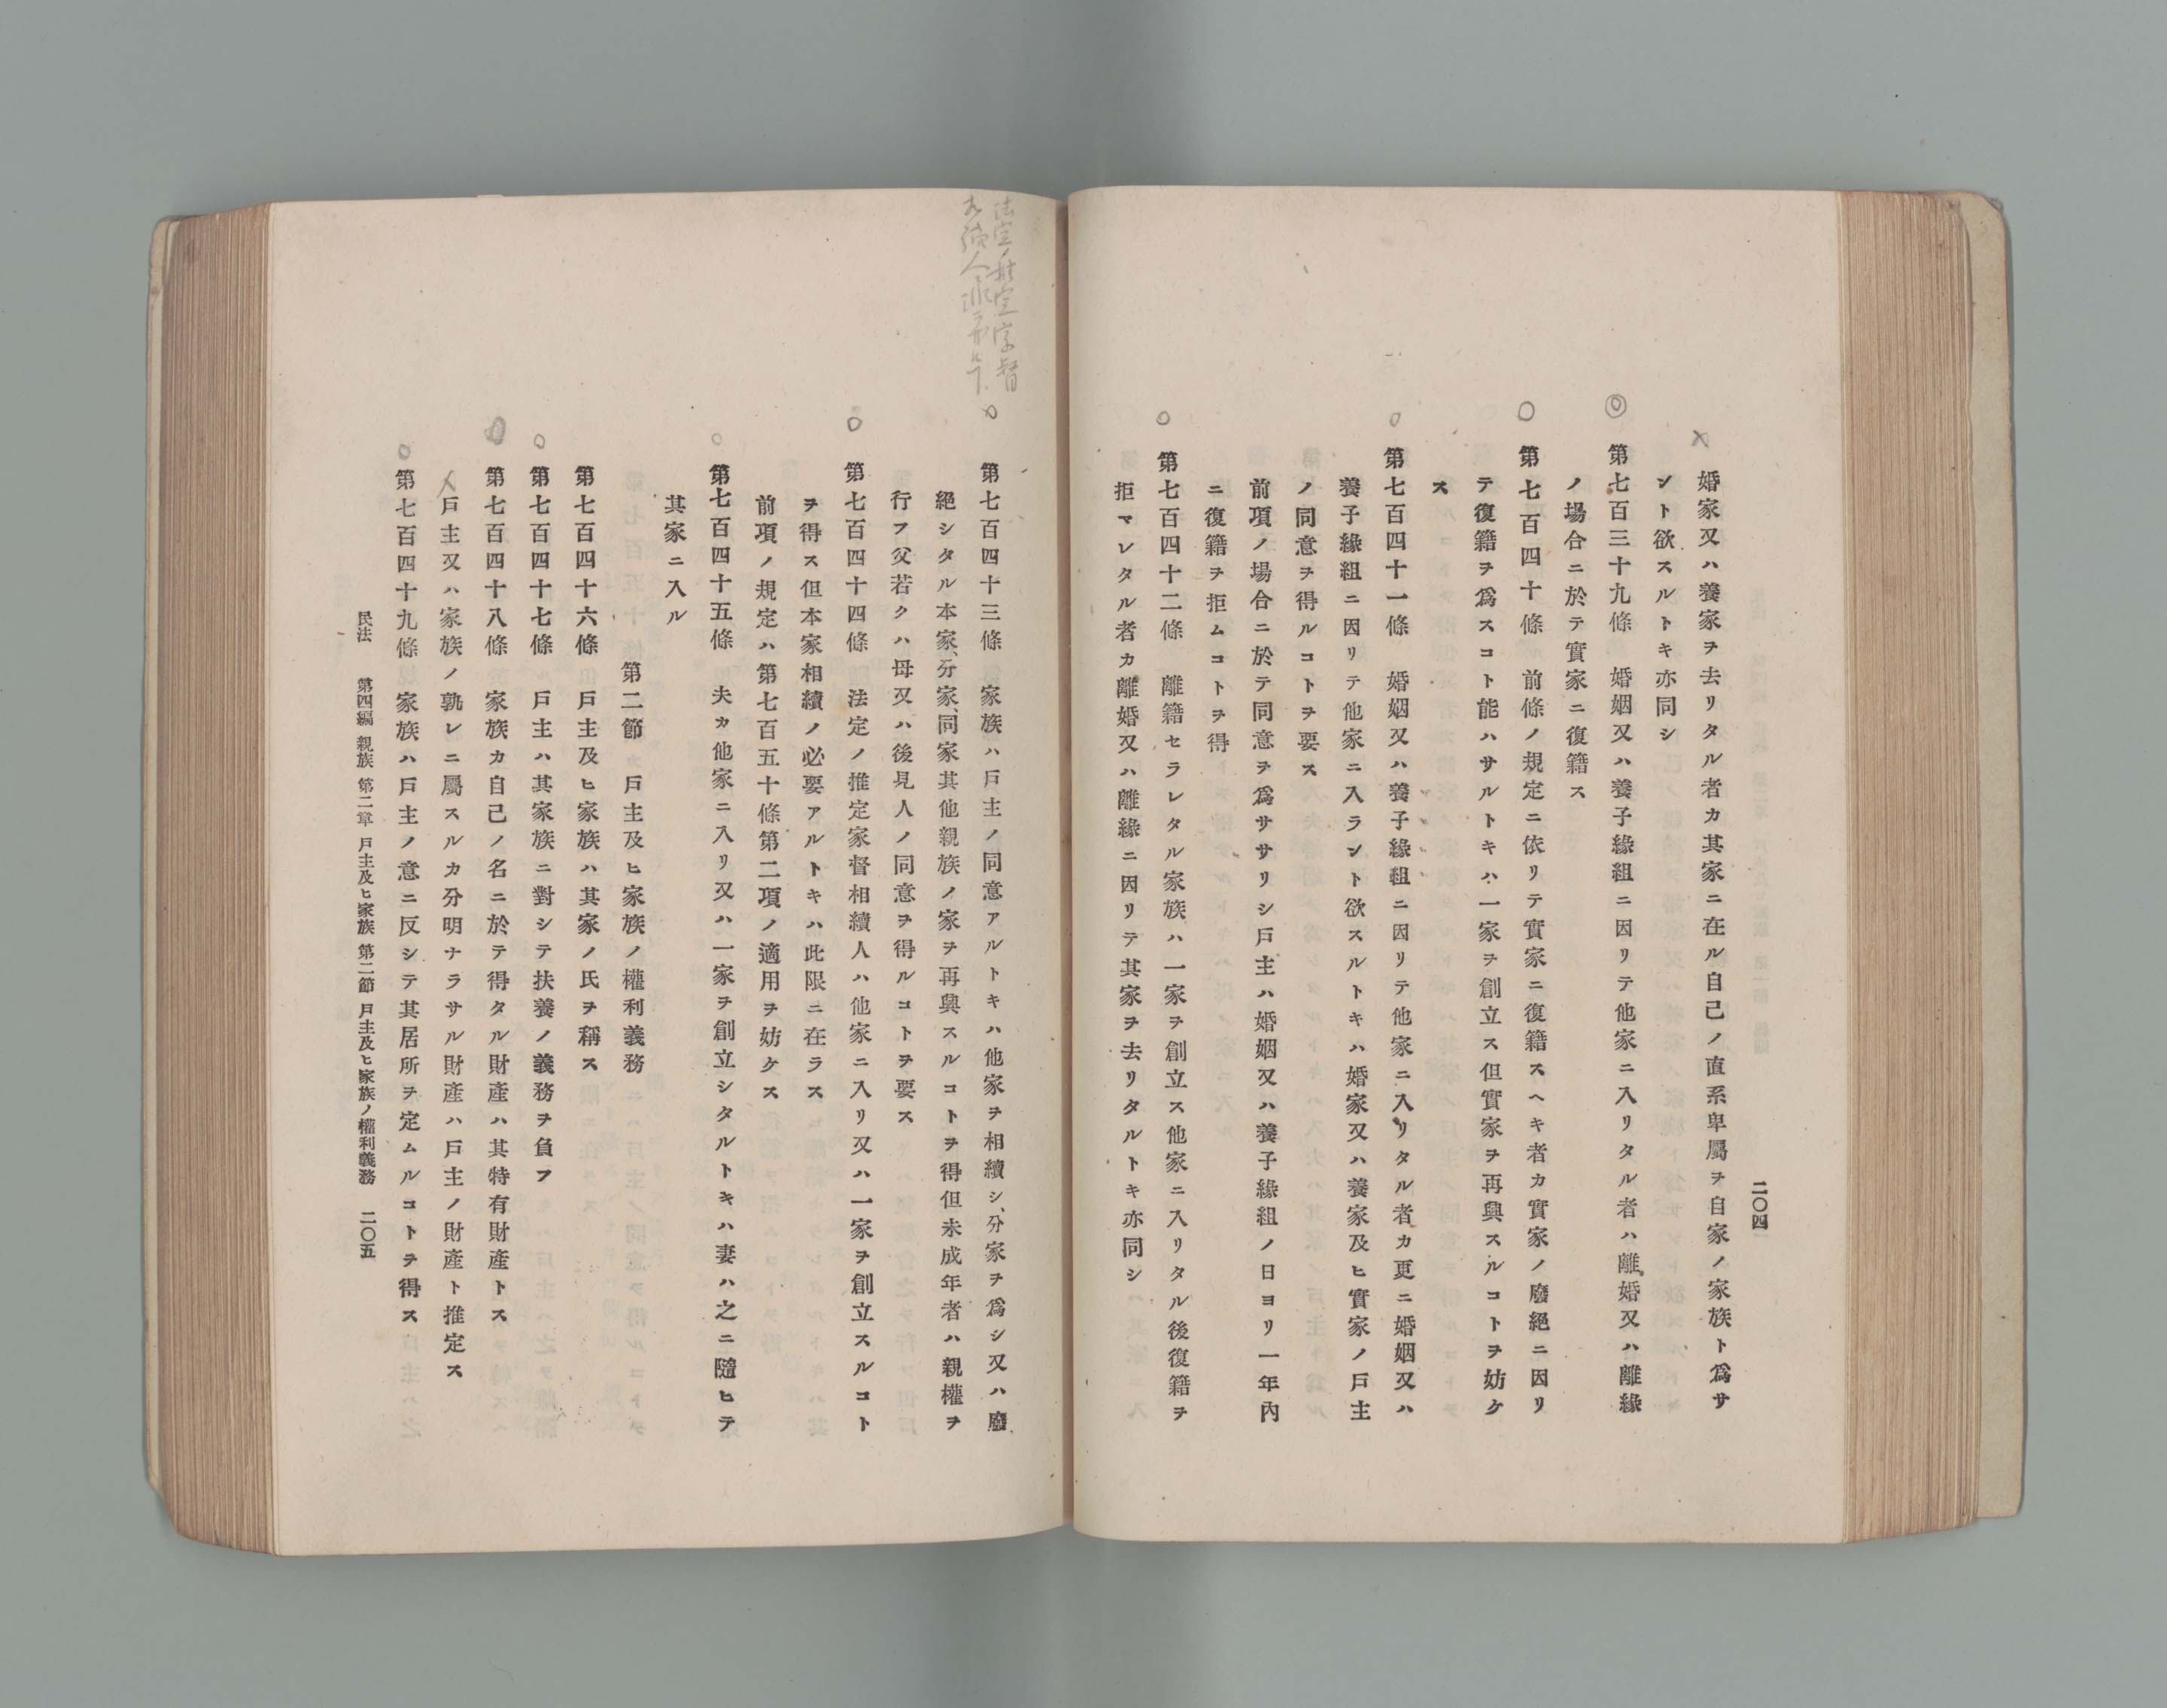 二〇四
婚家又ハ養家ヲ去リタル者カ其家ニ在ル自己ノ直系卑屬ヲ自家ノ家族ト爲サ
ント欲スルトキ亦同シ
第七百三十九條　婚姻又ハ養子緣組ニ因リテ他家ニ入リタル者ハ離婚又ハ離緣
ノ場合ニ於テ實家ニ復籍ス
第七百四十條　前條ノ規定ニ依リテ實家ニ復籍スヘキ者カ實家ノ廢絕ニ因リ
テ復籍ヲ爲スコト能ハサルトキハ一家ヲ創立ス但實家ヲ再興スルコトヲ妨ケ
ス
第七百四十一條　婚姻又ハ養子緣組ニ因リテ他家ニ入リタル者カ更ニ婚姻又ハ
養子緣組ニ因リテ他家ニ入ラント欲スルトキハ婚家又ハ養家及ヒ實家ノ戶主
ノ同意ヲ得ルコトヲ要ス
前項ノ場合ニ於テ同意ヲ爲ササリシ戶主ハ婚姻又ハ養子緣組ノ日ヨリ一年內
ニ復籍ヲ拒ムコトヲ得
第七百四十二條　離籍セラレタル家族ハ一家ヲ創立ス他家ニ入リタル後復籍ヲ
拒マレタル者カ離婚又ハ離緣ニ因リテ其家ヲ去リタルトキ亦同シ
法定ノ推定家督
第七百四十三條　家族ハ戶主ノ同意アルトキハ他家ヲ相續シ、分家ヲ爲シ又ハ廢
絕シタル本家、分家、同家其他親族ノ家ヲ再興スルコトヲ得但未成年者ハ親權ヲ
行フ父若クハ母又ハ後見人ノ同意ヲ得ルコトヲ要ス
第七百四十四條　法定ノ推定家督相續人ハ他家ニ入リ又ハ一家ヲ創立スルコト
ヲ得ス但本家相續ノ必要アルトキハ此限ニ在ラス
前項ノ規定ハ第七百五十條第二項ノ適用ヲ妨ケス
第七百四十五條　夫カ他家ニ入リ又ハ一家ヲ創立シタルトキハ妻ハ之ニ隨ヒテ
其家ニ入ル
第二節　戶主及ヒ家族ノ權利義務
第七百四十六條　戶主及ヒ家族ハ其家ノ氏ヲ稱ス
第七百四十七條　戶主ハ其家族ニ對シテ扶養ノ義務ヲ負フ
第七百四十八條　家族カ自己ノ名ニ於テ得タル財產ハ其特有財產トス
戶主又ハ家族ノ孰レニ屬スルカ分明ナラサル財產ハ戶主ノ財產ト推定ス
第七百四十九條　家族ハ戶主ノ意ニ反シテ其居所ヲ定ムルコトヲ得ス
民法　第四編　親族　第二章　戶主及ヒ家族　第二節　戶主及ヒ家族ノ權利義務　二〇五